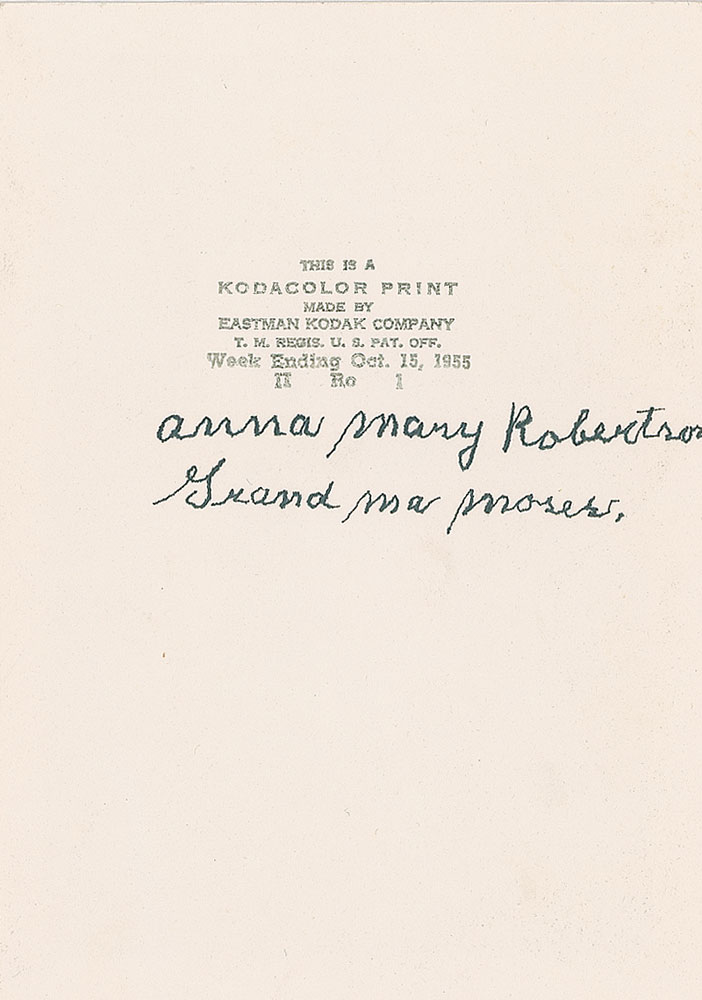 THIS IS A
KODACOLOR PRINT
MADE BY
EASTMAN KODAK COMPANY
T. M. REGIS. U. S. PAT. OFF.
Week Ending Oct. 15, 1955
II Ro 1
anna mary Robertson
Grand ma moses.